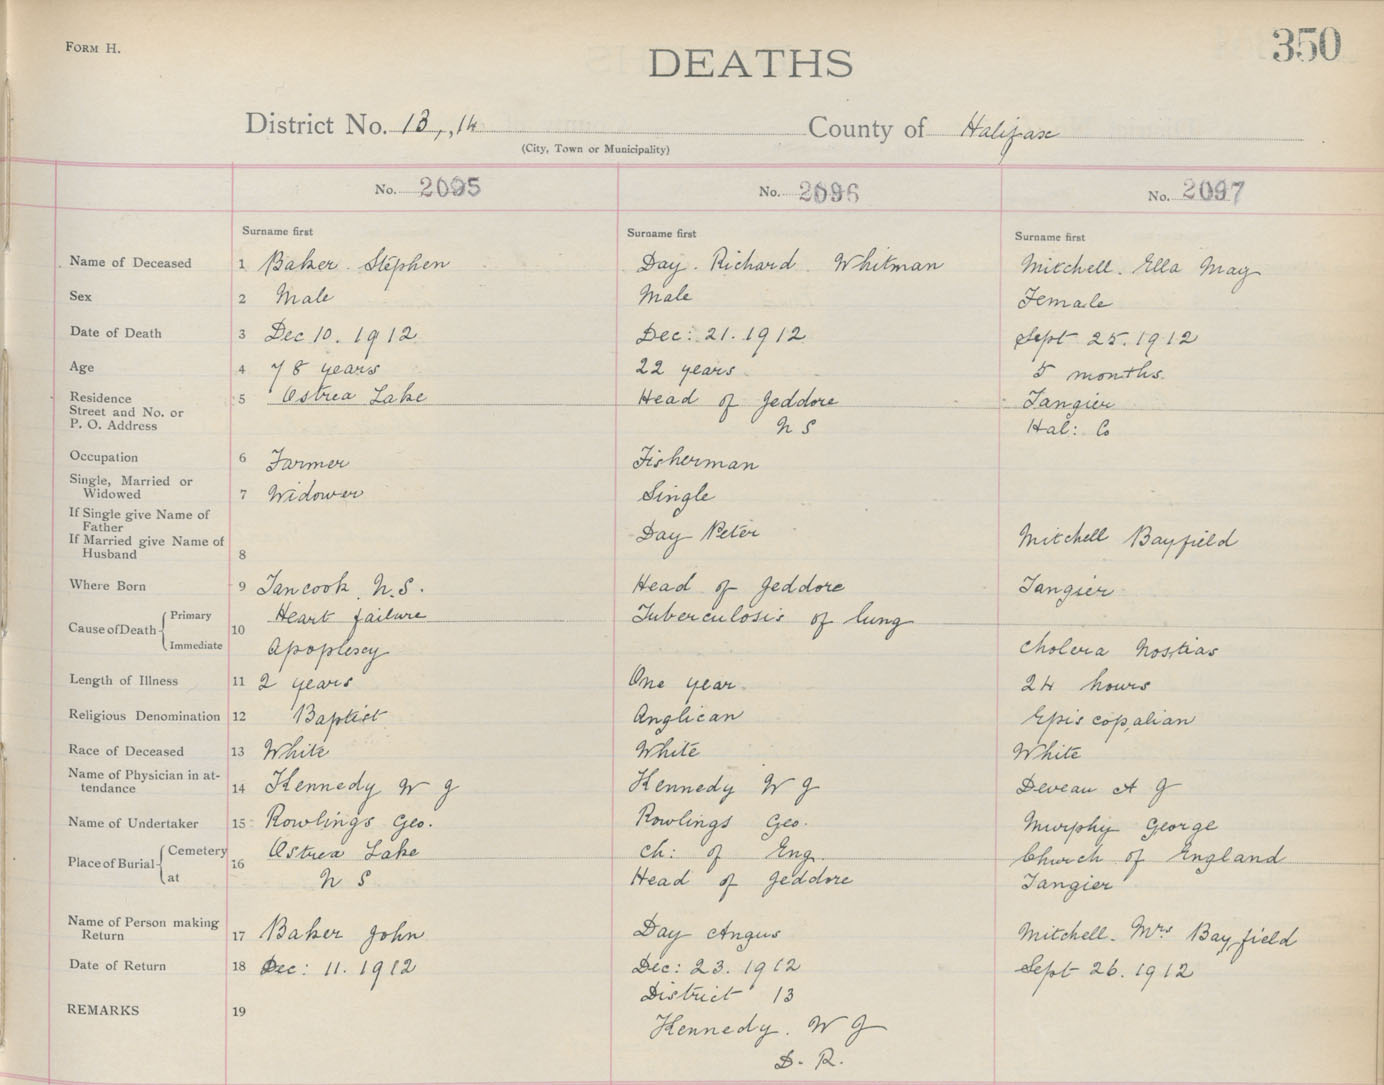 FORM H.
350
DEATHS
District No. 13,,14 County of Halifax
(City, Town or Municipality)
No. 2095 No. 2096 No. 2097
Surname first Surname first Surname first
Name of Deceased 1 Baker. Stephen Day. Richard. Whitman Mitchell. Ella May
Sex 2 Male Male Female
Date of Death 3 Dec 10. 1912 Dec: 21. 1912 Sept 25. 1912
Age 4 78 years 22 years 5 months.
Residence 5 Ostrea Lake Head of Jeddore Tangier
Street and No. or
P. O. Address N S Hal: Co
Occupation 6 Farmer Fisherman
Single, Married or
Widowed 7 Widower Single
If Single give Name of
Father
Day Peter Mitchell Bayfield
If Married give Name of
Husband 8
Where Born 9 Tancook. N.S. Head of Jeddore Tangier
Cause of Death Primary 10 Heart failure Tuberculosis of lung
Immediate Apoplexy Cholera Nostras
Length of Illness 11 2 years One year. 24 hours
Religious Denomination 12 Baptist Anglican Episcopalian
Race of Deceased 13 White White White
Name of Physician in at-
tendance 14 Kennedy W J Kennedy W J Deveau A J
Name of Undertaker 15 Rowlings Geo. Rowlings Geo. Murphy George
Place of Burial Cemetery 16 Ostrea Lake Ch: of Eng. Church of England
at N S Head of Jeddore Tangier
Name of Person making
Return 17 Baker John Day Angus Mitchell. Mrs Bayfield
Date of Return 18 Dec: 11. 1912 Dec: 23. 1912 Sept 26. 1912
District 13
REMARKS 19
Kennedy. W J
D. R.